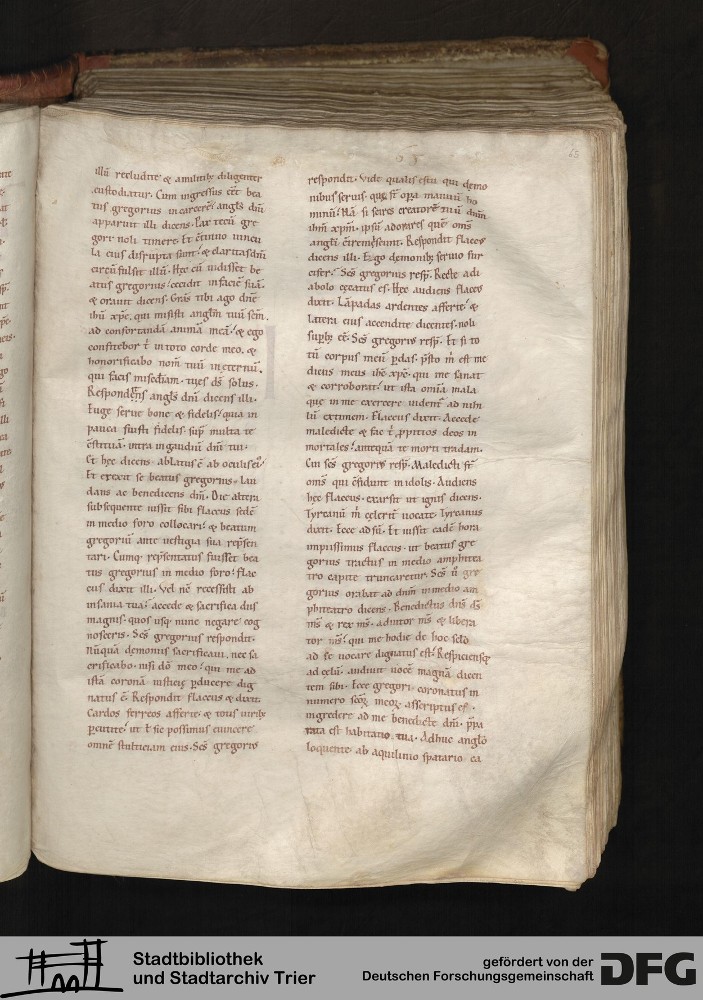 65
illū recludite & a militib; diligenter
custodiatur. Cum ingressus eēt bea
tus gregorius in carcerē. angl's dn̄i
apparuit illi dicens. Pax tecū gre
gori. noli timere. Et c̄tinuo vincu
la eius disrupta sunt. & claritas dn̄i
circū fulsit illū. Hęc cū vidisset be
atus gregorius. cecidit in faciē suā.
& oravit dicens. Grās tibi ago dn̄e
ihū xp̄e. qui misisti anglm̄ tuū sc̄m.
ad confortandā animā meā. & ego
confitebor t̄ in toto corde meo. &
honorificabo nom̄ tuū in eternū.
qui facis misc̄diam. tu es d̄s solus.
Respondens angl's dn̄i dicens illi.
Euge serve bone & fidelis. quia in
pauca fuisti fidelis. sup̄ multa te
c̄stituā. intra in gaudiū dn̄i tui.
Et hęc dicens. ablatus ē ab oculis ei'.
Et erexit se beatus gregorius. lau
dans ac benedicens dn̄m. Die altera
subsequente iussit sibi flaccus sedē
in medio foro collocari. & beatum
gregoriū ante vestigia sua rep̄sen
tari. Cumq; rep̄sentatus fuisset bea
tus gregorius in medio foro. flac
cus dixit illi. Vel n̄c recessisti ab
insania tua. accede & sacrifica diis
magnis. quos usq; nunc negare cog
nosceris. Sc̄s gregorius respondit.
Nūquā demoniis sacrificavi. nec sa
crificabo. nisi dō meo. qui me ad
istā coronā iusticię p̄ducere dig
natus ē. Respondit flaccus & dixit.
Cardos ferreos afferte. & totis virib;
p̄cutite. ut t̄ sic possimus evincere
omnē stulticiam eius. Sc̄s gregorius
respondit. Vide qualis es tu qui demo
nibus servis. quę st̄ opera manuū ho
minū. Nā si scires creatorē tuū dn̄m
ihm̄ xp̄m. ipsū adorares quē oms̄
angli ciremescunt. Respondit flaccus
dicens illi. Ego demonib; servio fur
cifer. Sc̄s gregorius resp̄. Recte adi
abolo exeatus es. Hęc audiens flaccus
dixit. Lāpadas ardentes afferte. &
latera eius accendite dicentes. noli
sup̄b; eē. Sc̄s gregorius resp̄. Et si to
tū corpus meū p̄das. p̄sto m̄ est me
dicus meus ihc̄ xp̄c. qui me sanat
& corroborat. ut ista omīa mala
que in me exercere videnr̄ ad nihi
lū extimem. Flaccus dixit. Accede
maledicte & fac t̄ p̄pitios deos in
mortales. antequā te morti tradam.
Cui sc̄s gregorius resp̄. Maledicti st̄
oms̄ qui c̄fidunt in idolis. Audiens
hęc flaccus. exarsit ut ignis dicens.
Tyreanū m̄ celerit̄ vocate. Tyreanus
dixit. Ecce adsū. Et iussit eadē hora
impiissimus flaccus. ut beatus gre
gorius tractus in medio amphitea
tro capite truncaretur. Sc̄s ū gre
gorius orabat ad dnm̄ in medio am
phiteatro dicens. Benedictus dn̄s d̄s
ms̄ & rex ms̄. adiutor ms̄ & libera
tor ms̄. qui me hodie de hoc sclo
ad se vocare dignatus est. Respiciensq;
ad cęlū. audivit vocē magnā dicen
tem sibi. Ecce gregori. coronatus in
numero sc̄oꝝ meoꝝ. asscriptus es.
ingredere ad me benedicte dn̄i. p̄pa
rata est habitatio tua. Adhuc anglo
loquente. ab aquilinio spatario ca
Stadtbibliothek
und Stadtarchiv Trier
gefördert von der
Deutschen Forschungsgemeinschaft
DFG